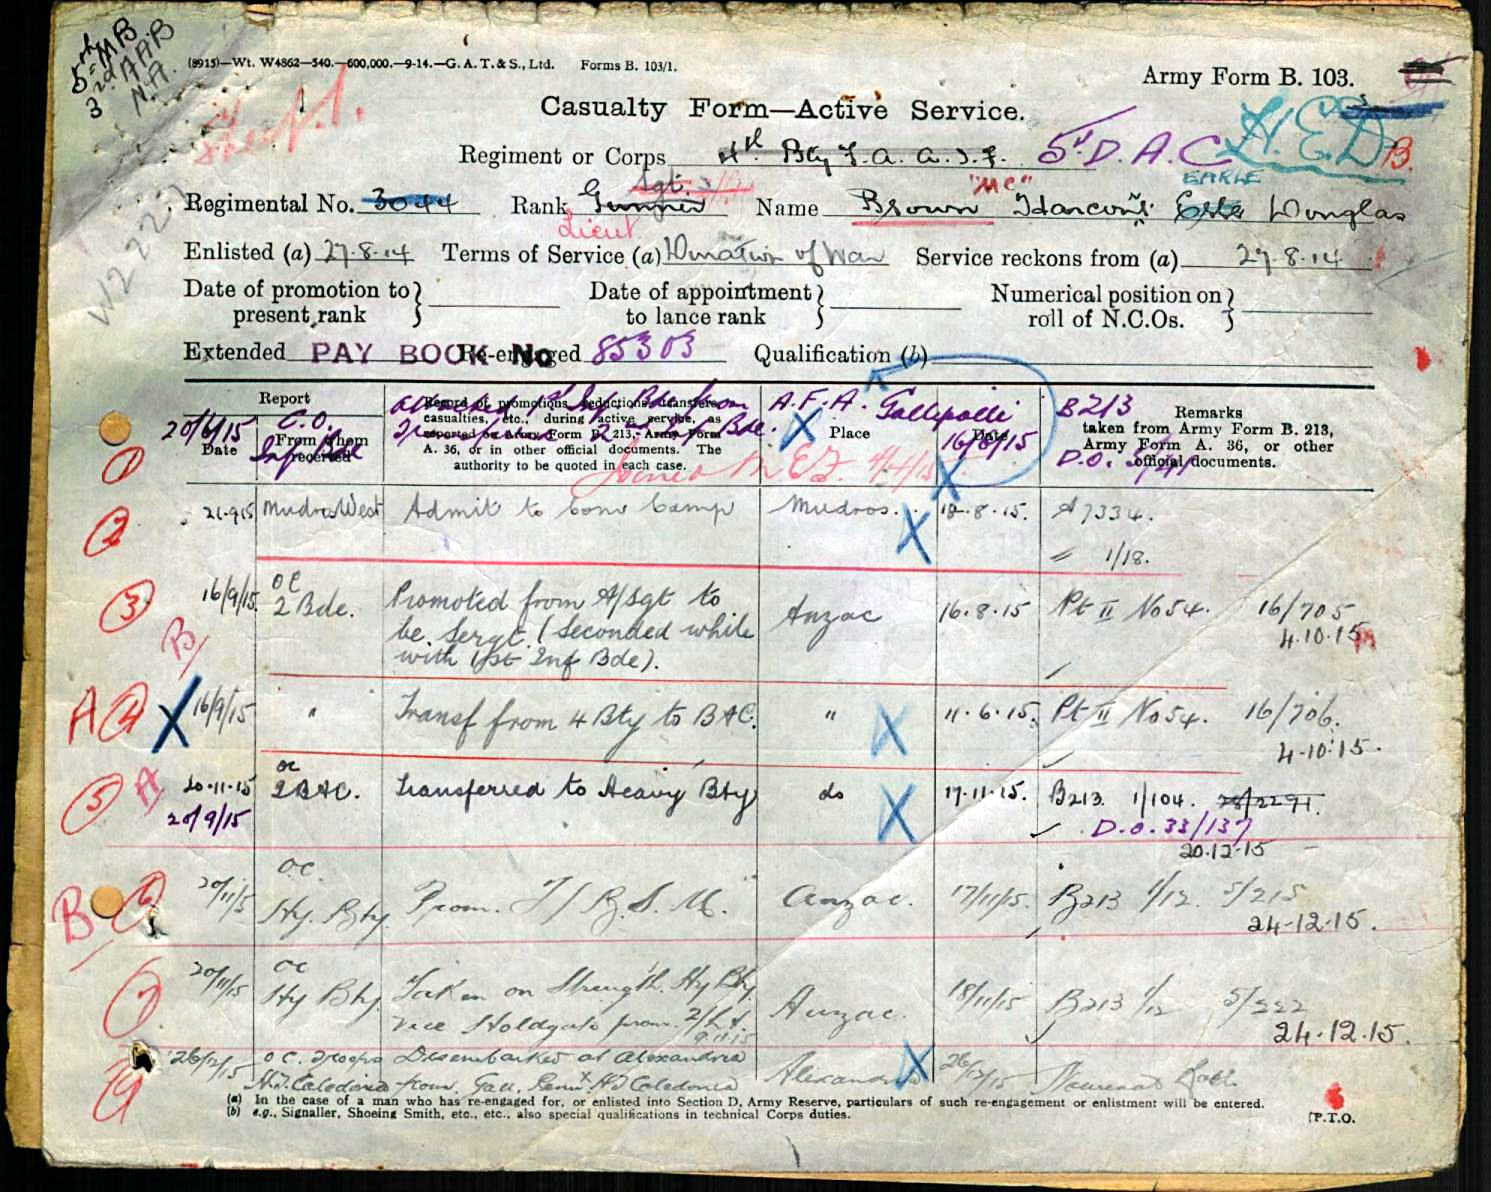 5th MB
3rd AAB
N.A.
(8915)—Wt. W4862—540.—600,000.—9-14.—G. A. T. & S., Ltd. Forms B. 103/1.
Army Form B. 103.
Casualty Form—Active Service.
H.E.D.B.
Regiment or Corps 4th Bty F. A. A. I. F. 5" D. A. C
EARLE
Sgt. "MC"
Regimental No. 3044 Rank Gunner Name Brown Harcourt Douglas
Lieut
Enlisted (a) 27-8-14 Terms of Service (a) Duration of War Service reckons from (a) 27-8-14
Date of promotion to present rank Date of appointment to lance rank Numerical position on roll of N.C.Os.
Extended PAY BOOK No Re-engaged 85303 Qualification (b)
Report
Date
From whom received
Record of promotions, reductions, transfers, casualties, etc., during active service, as reported on Army Form B. 213, Army Form A. 36, or in other official documents. The authority to be quoted in each case.
Place
Date
Remarks
taken from Army Form B. 213, Army Form A. 36, or other official documents.
1 20/6/15 C.O. Inf Bde attached 1st Inf Bde from 2nd Bde. A.F.A. Gallipoli 16/6/15 B213 D.O.
Joined M E F. 4/4/15
2 Mudros West Admit to Conv Camp Mudros. 8.15. A7334.
" 1/18.
3 16/9/15 OC 2 Bde. Promoted from A/Sgt to be Sergt. (Seconded while with 1st Inf Bde). Anzac 16.8.15 Pt II No 54. 16/705
4.10.15
B
A 4 16/9/15 " Transf from 4 Bty to BAC. " 11.6.15 Pt II No 54. 16/706.
4-10-15.
5 A 20-11-15 OC 2 BAC. Transferred to Heavy Bty do 17-11-15. B213. 1/104.
20/9/15 D.O. 33/137
20-12-15
B 6 20/11/15 O.C. Hy. Bty. Prom. T/B.S.M. Anzac. 17/11/15. B213 1/12. 5/215
24-12-15.
7 20/11/15 OC Hy Bty Taken on Strength Hy Bty vice Holdgate prom. 2/Lt. 9.11.15 Anzac. 18/11/15 B213 1/12 5/222
24.12.15.
26/12/15 O C. Troops H.T. Caledonia Disembarked at Alexandria from Gall. Penin. HT Caledonia Alexandria 26/12/15 Nominal Roll
(a) In the case of a man who has re-engaged for, or enlisted into Section D, Army Reserve, particulars of such re-engagement or enlistment will be entered.
(b) e.g., Signaller, Shoeing Smith, etc., etc., also special qualifications in technical Corps duties.
[P.T.O.